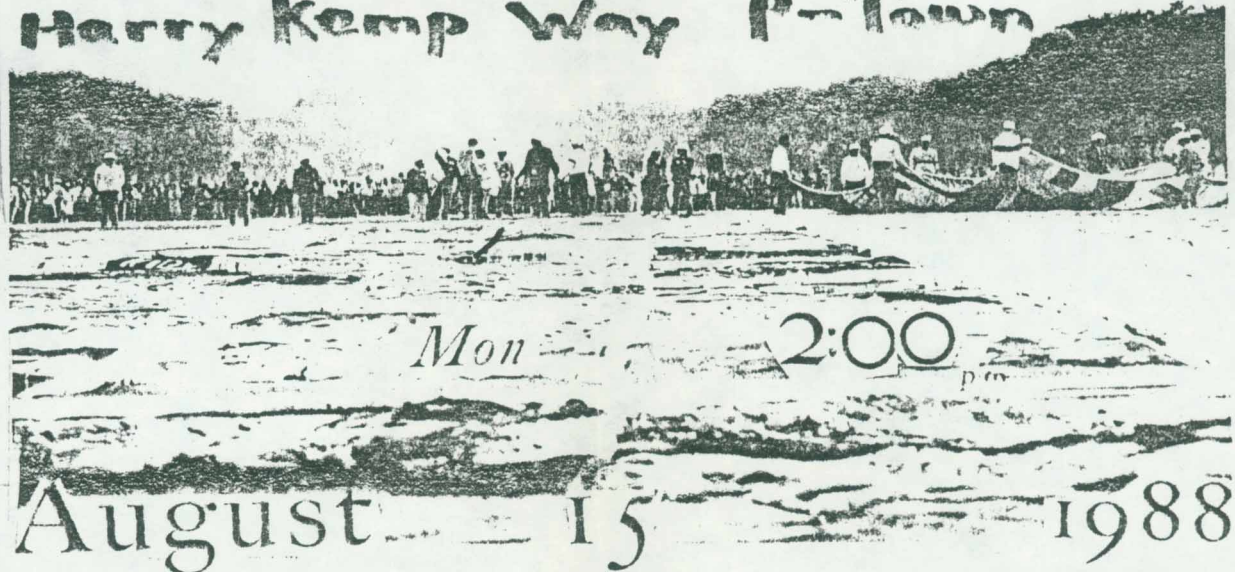 Harry Kemp Way P-Town
Mon 2:00 pm
August 15 1988